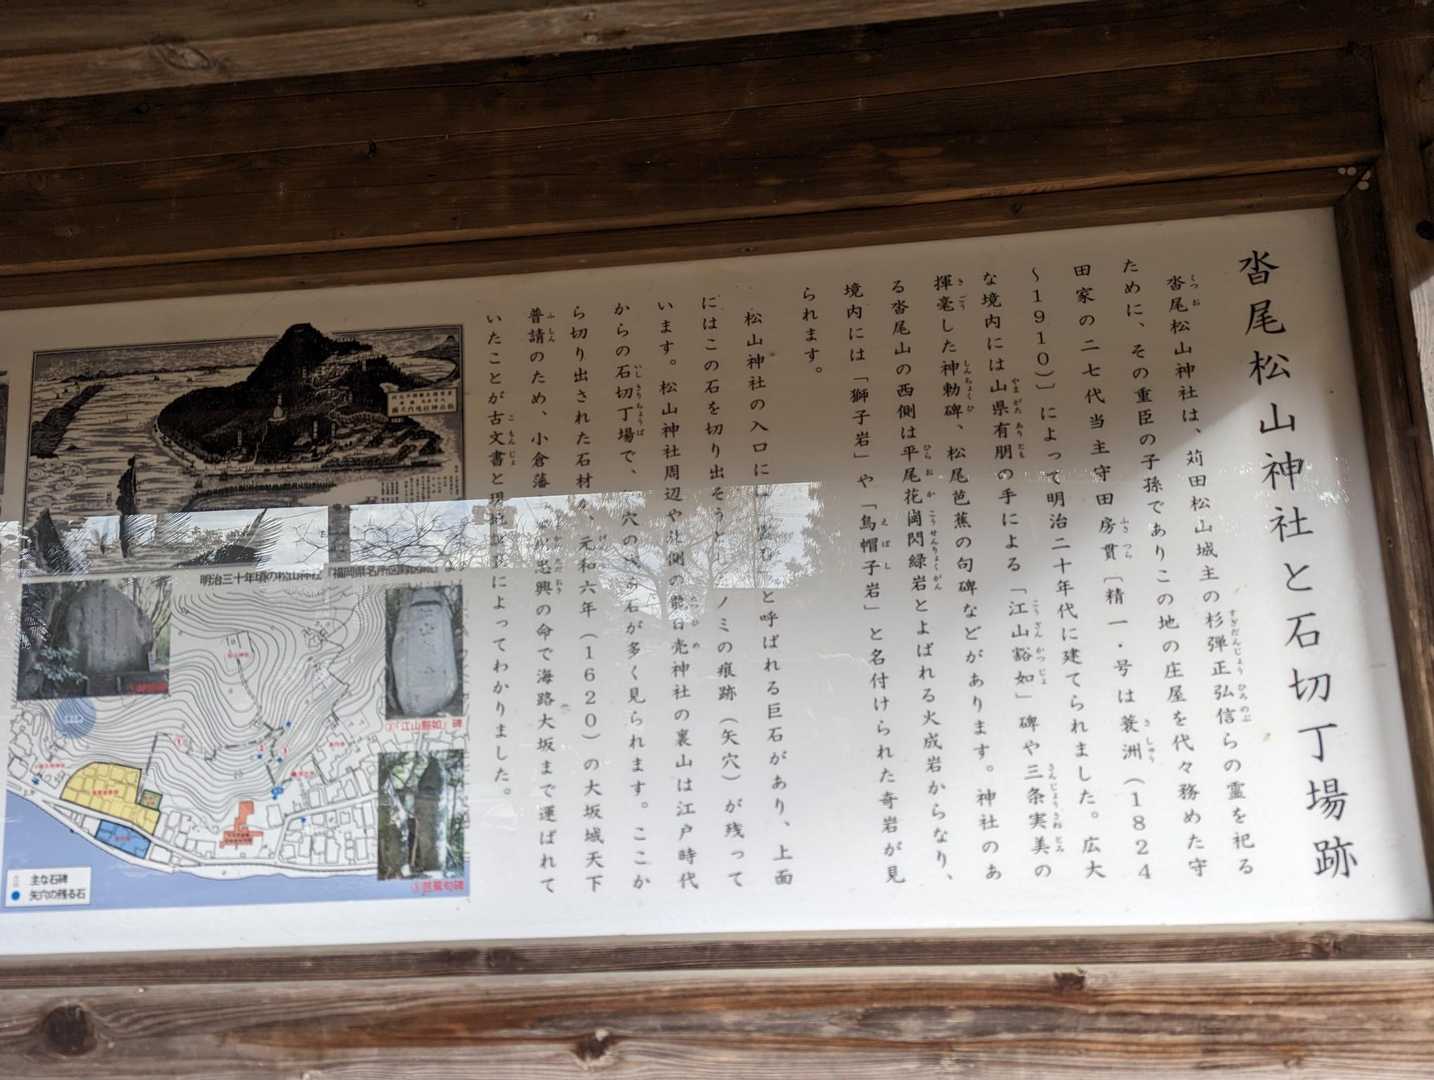 沓尾松山神社と石切丁場跡
沓尾松山神社は、苅田松山城主の杉弾正弘信らの霊を祀る
ために、その重臣の子孫でありこの地の庄屋を代々務めた守
田家の二七代当主守田房貫〔精一・号は蓑洲（1824
〜1910）〕によって明治二十年代に建てられました。広大
な境内には山県有朋の手による「江山豁如」碑や三条実美の
揮毫した神勅碑、松尾芭蕉の句碑などがあります。神社のあ
る沓尾山の西側は平尾花崗閃緑岩とよばれる火成岩からなり、
境内には「獅子岩」や「烏帽子岩」と名付けられた奇岩が見
られます。
松山神社の入口に と呼ばれる巨石があり、上面
にはこの石を切り出そうと ノミの痕跡（矢穴）が残って
います。松山神社周辺や 側の 神社の裏山は江戸時代
からの石切丁場で、穴の 石が多く見られます。ここか
ら切り出された石材が、元和六年（1620）の大坂城天下
普請のため、小倉藩 忠興の命で海路大坂まで運ばれて
いたことが古文書と現地 によってわかりました。
明治三十年頃の松山神社
②「江山豁如」碑
③芭蕉句碑
主な石碑
矢穴の残る石